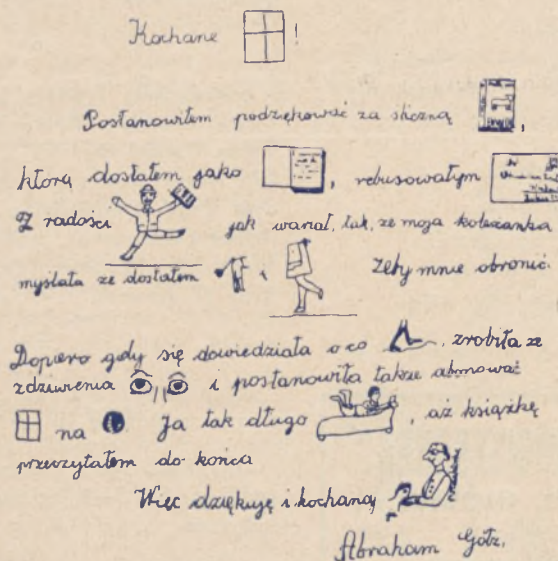 Kochane !
Postanowiłem podziękować za śliczną ,
którą dostałem jako , rebusowałym
Z radości jak wariat, tak, że moja koleżanka
myślała że dostałem i żeby mnie obronić.
Dopiero gdy się dowiedziała o co , zrobiła ze
zdziwienia i postanowiła także abonować
na Ja tak długo , aż książkę
przeczytałem do końca
Więc dziękuję i kochaną
Abraham Götz.